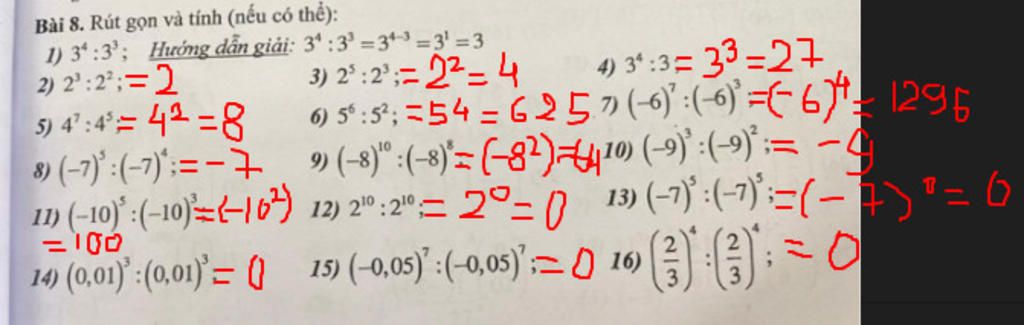 Bài 8. Rút gọn và tính (nếu có thể):
1) 3⁴ : 3³; Hướng dẫn giải: 3⁴ : 3³ = 3⁴⁻³ = 3¹ = 3
2) 2³ : 2²; = 2 3) 2⁵ : 2³; = 2² = 4 4) 3⁴ : 3 = 3³ = 27
5) 4⁷ : 4⁵ = 4² = 8 6) 5⁶ : 5²; = 54 = 625 7) (−6)⁷ : (−6)³ = (−6)⁴ = 1296
8) (−7)⁵ : (−7)⁴; = −7 9) (−8)¹⁰ : (−8)⁸ = (−8²) = 64 10) (−9)³ : (−9)²; = −9
11) (−10)⁵ : (−10)³ = (−10²) 12) 2¹⁰ : 2¹⁰; = 2⁰ = 0 13) (−7)⁵ : (−7)⁵; = (−7)⁰ = 0
= 100
14) (0,01)³ : (0,01)³ = 0 15) (−0,05)⁷ : (−0,05)⁷; = 0 16) (2/3)⁴ : (2/3)⁴; = 0